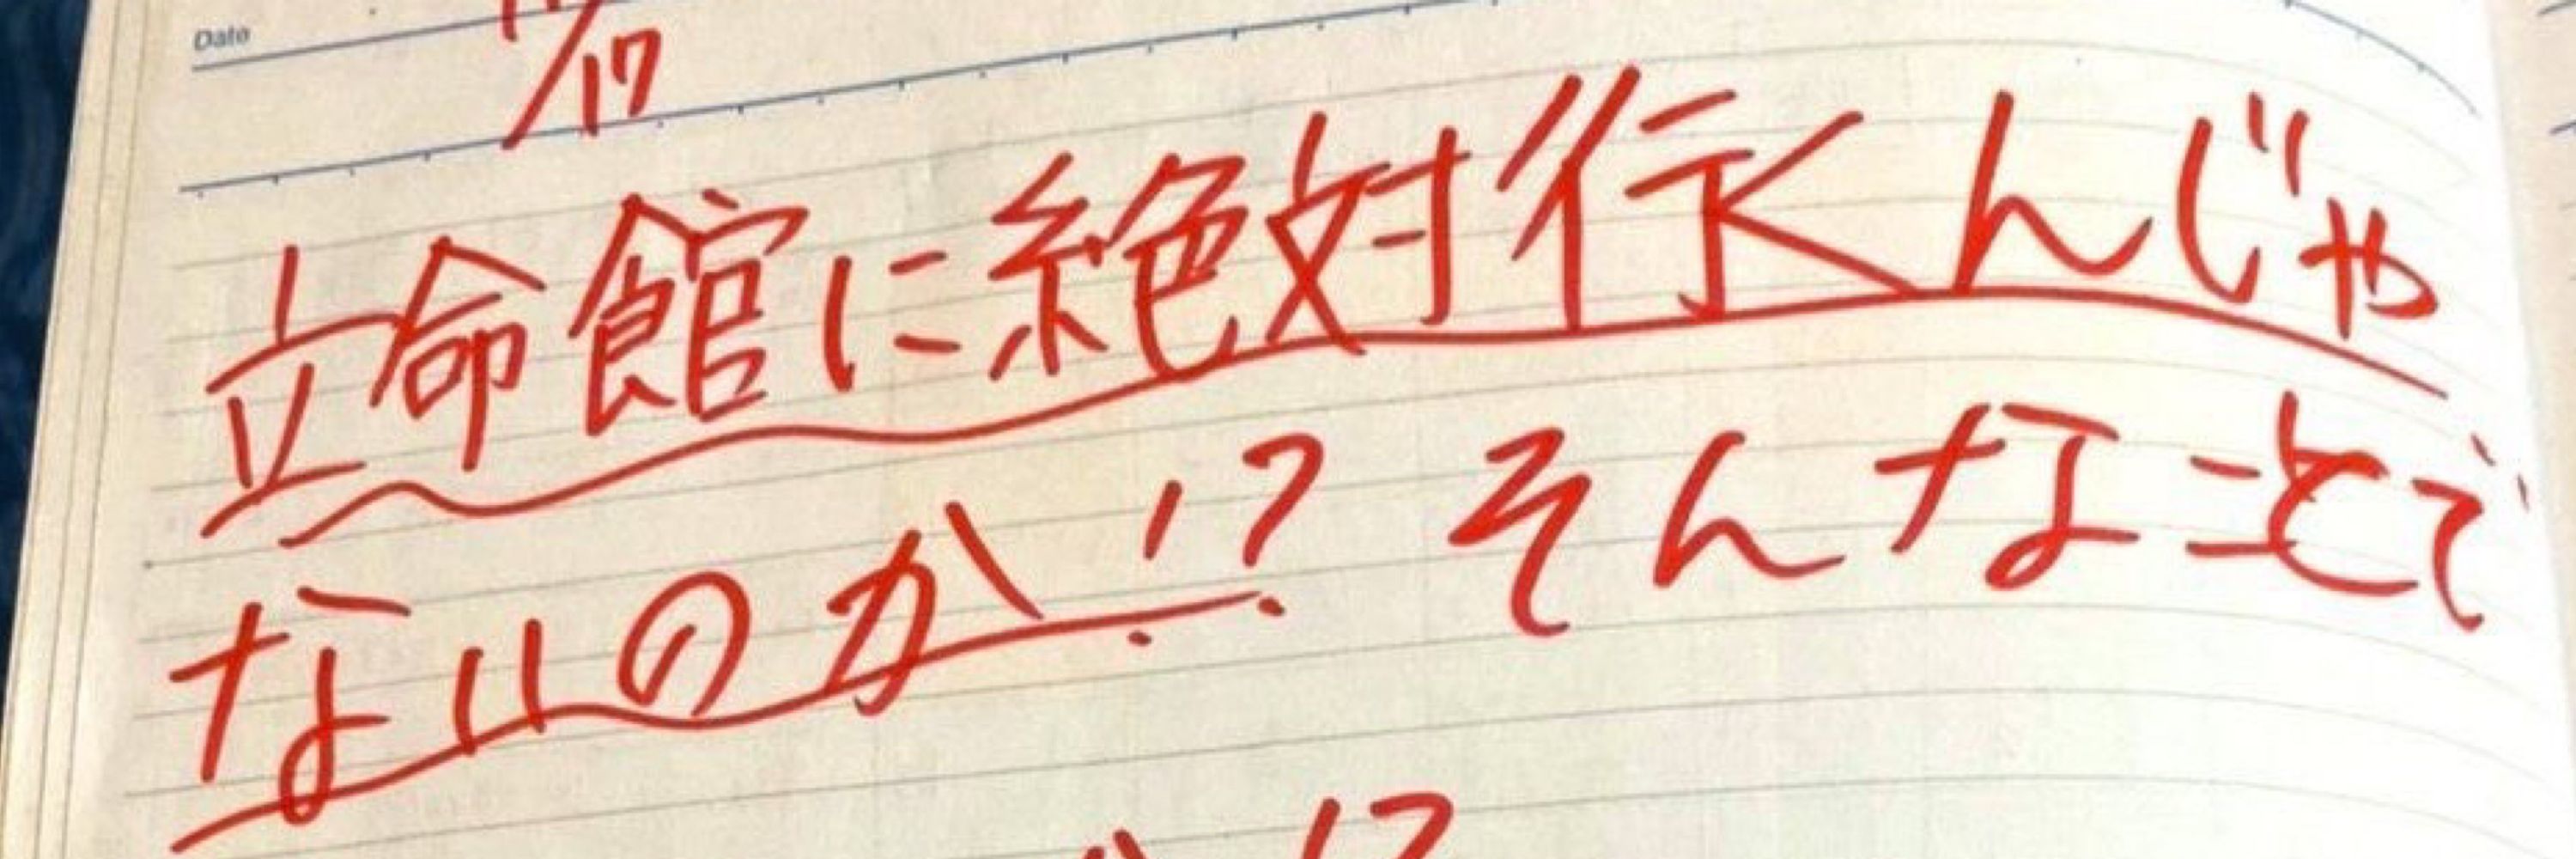 Date
/17
立命館に絶対行くんじゃ
ないのか!? そんなことで
か!?